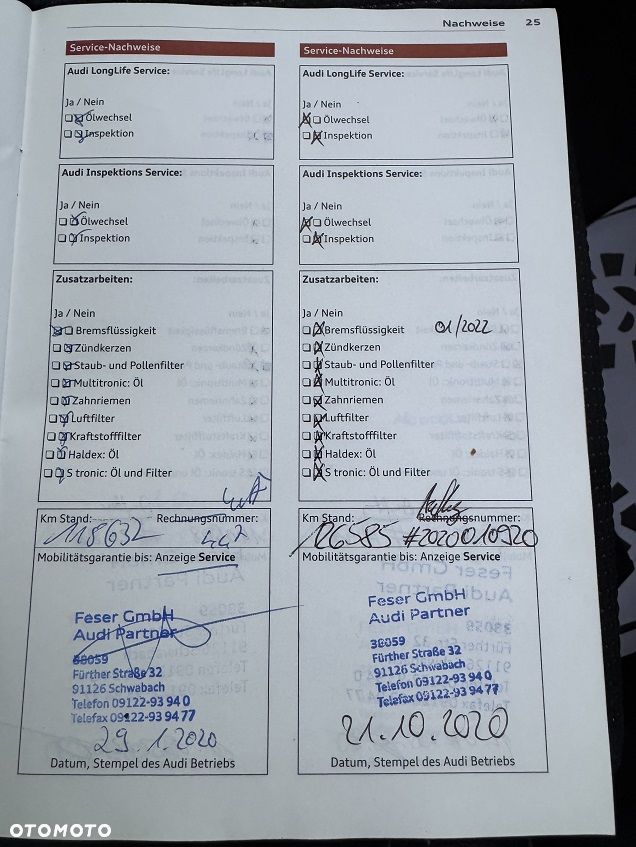 Nachweise 25
Service-Nachweise
Audi LongLife Service:
Ja / Nein
Ölwechsel
Inspektion
Audi Inspektions Service:
Ja / Nein
Ölwechsel
Inspektion
Zusatzarbeiten:
Ja / Nein
Bremsflüssigkeit
Zündkerzen
Staub- und Pollenfilter
Multitronic: Öl
Zahnriemen
Luftfilter
Kraftstofffilter
Haldex: Öl
S tronic: Öl und Filter
Km Stand: Rechnungsnummer:
118632
Mobilitätsgarantie bis: Anzeige Service
Feser GmbH
Audi Partner
38059
Fürther Straße 32
91126 Schwabach
Telefon 09122-93 94 0
Telefax 09122-93 94 77
29.1.2020
Datum, Stempel des Audi Betriebs
Service-Nachweise
Audi LongLife Service:
Ja / Nein
Ölwechsel
Inspektion
Audi Inspektions Service:
Ja / Nein
Ölwechsel
Inspektion
Zusatzarbeiten:
Ja / Nein
Bremsflüssigkeit 01/2022
Zündkerzen
Staub- und Pollenfilter
Multitronic: Öl
Zahnriemen
Luftfilter
Kraftstofffilter
Haldex: Öl
S tronic: Öl und Filter
Km Stand: Rechnungsnummer:
126585 #2020010920
Mobilitätsgarantie bis: Anzeige Service
Feser GmbH
Audi Partner
38059
Fürther Straße 32
91126 Schwabach
Telefon 09122-93 94 0
Telefax 09122-93 94 77
21.10.2020
Datum, Stempel des Audi Betriebs
OTOMOTO